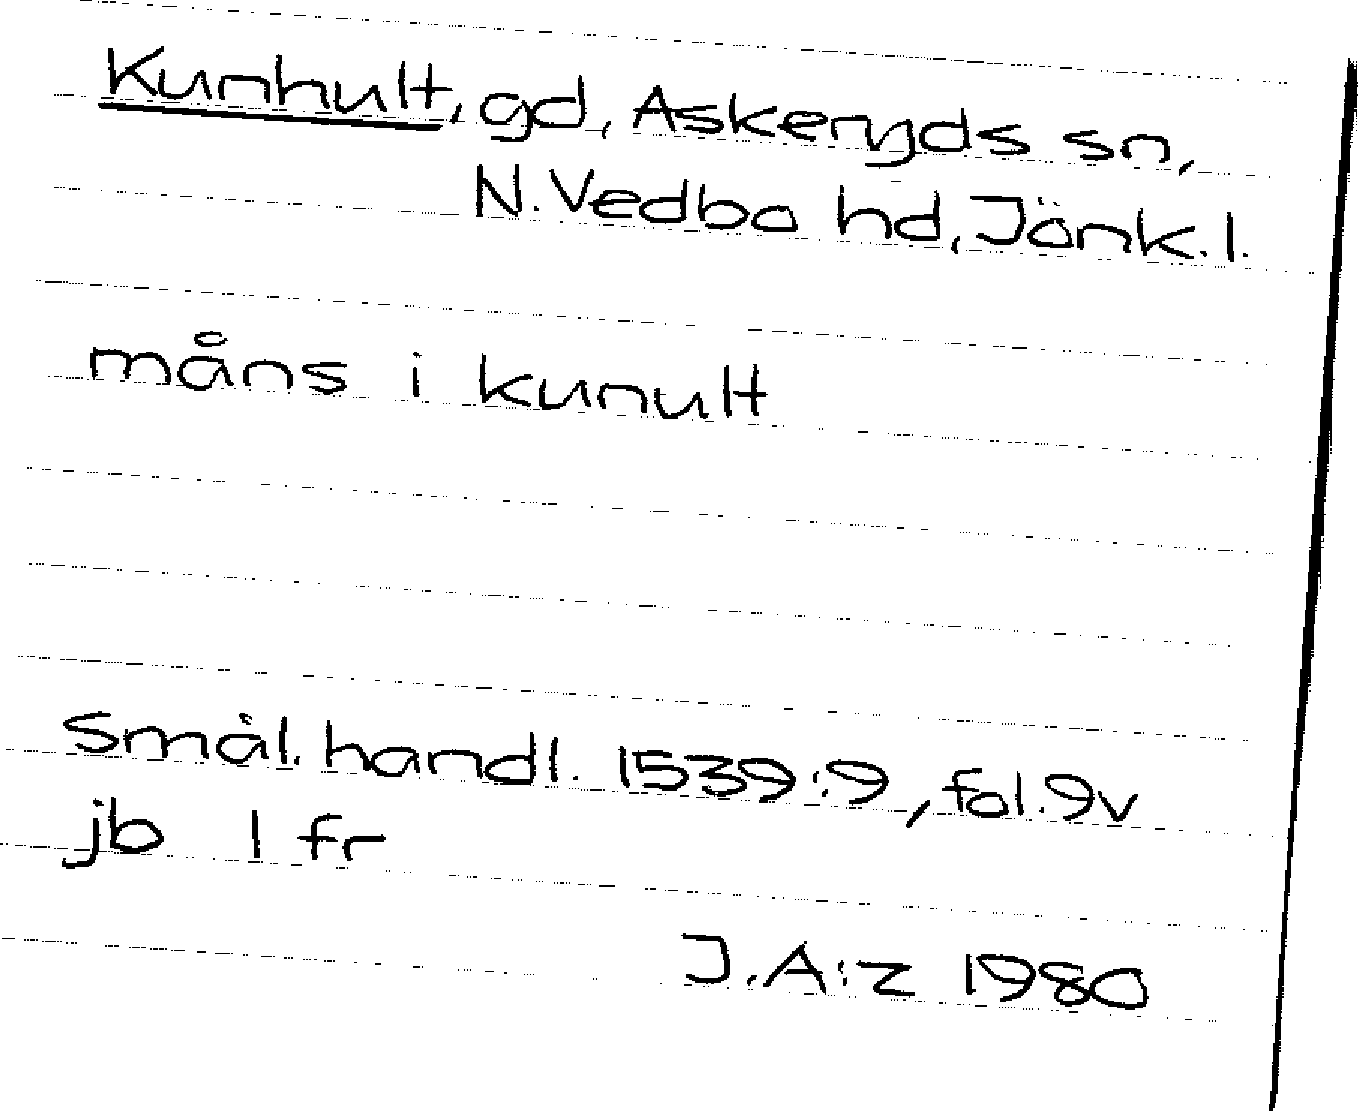 Kunhult, gd, Askeryds sn,
N. Vedbo hd, Jönk. l.
måns i kunult
Smål. handl. 1539:9, fol. 9v
jb 1 fr
J.A:z 1980